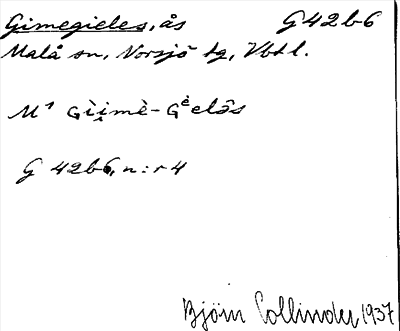 Gimegieles, ås G42b6
Malå sn, Norsjö tg, Vbtl.
M¹ Gìi̭mè-Gèelôs
G 42b6, n:r 4
Björn Collinder 1937